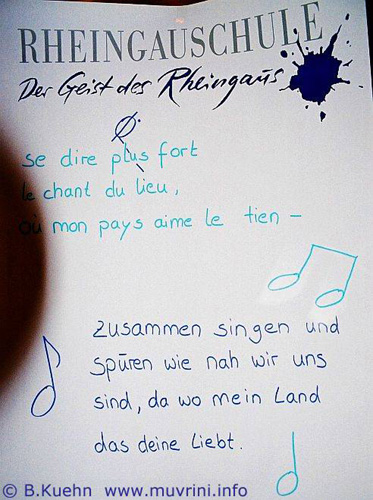 RHEINGAUSCHULE
Der Geist des Rheingaus
se dire plus fort
le chant du lieu,
où mon pays aime le tien –
Zusammen singen und
spüren wie nah wir uns
sind, da wo mein Land
das deine liebt.
© B.Kuehn www.muvrini.info